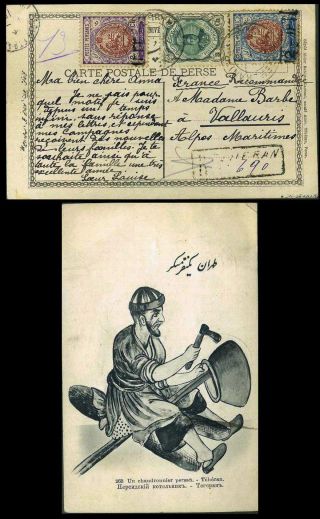 13
CARTE POSTALE DE PERSE
Ma bien chère Anna
Je ne puis pas pour-
quel motif je suis
depuis un temps
infini sans réponse
à mes lettres. Cependant
mes compagnes
reçoivent des nouvelles
de leurs familles. Je te
souhaite ainsi qu'à
toute la famille une très
excellente année
Sœur Louise
France Recommandée
A Madame Barbe
Vallauris
Alpes Maritimes
R TEHERAN
690
طهران یکنفر مسگر
263 Un chaudronnier persan. - Téhéran.
Персидскій котельникъ. - Тегеранъ.